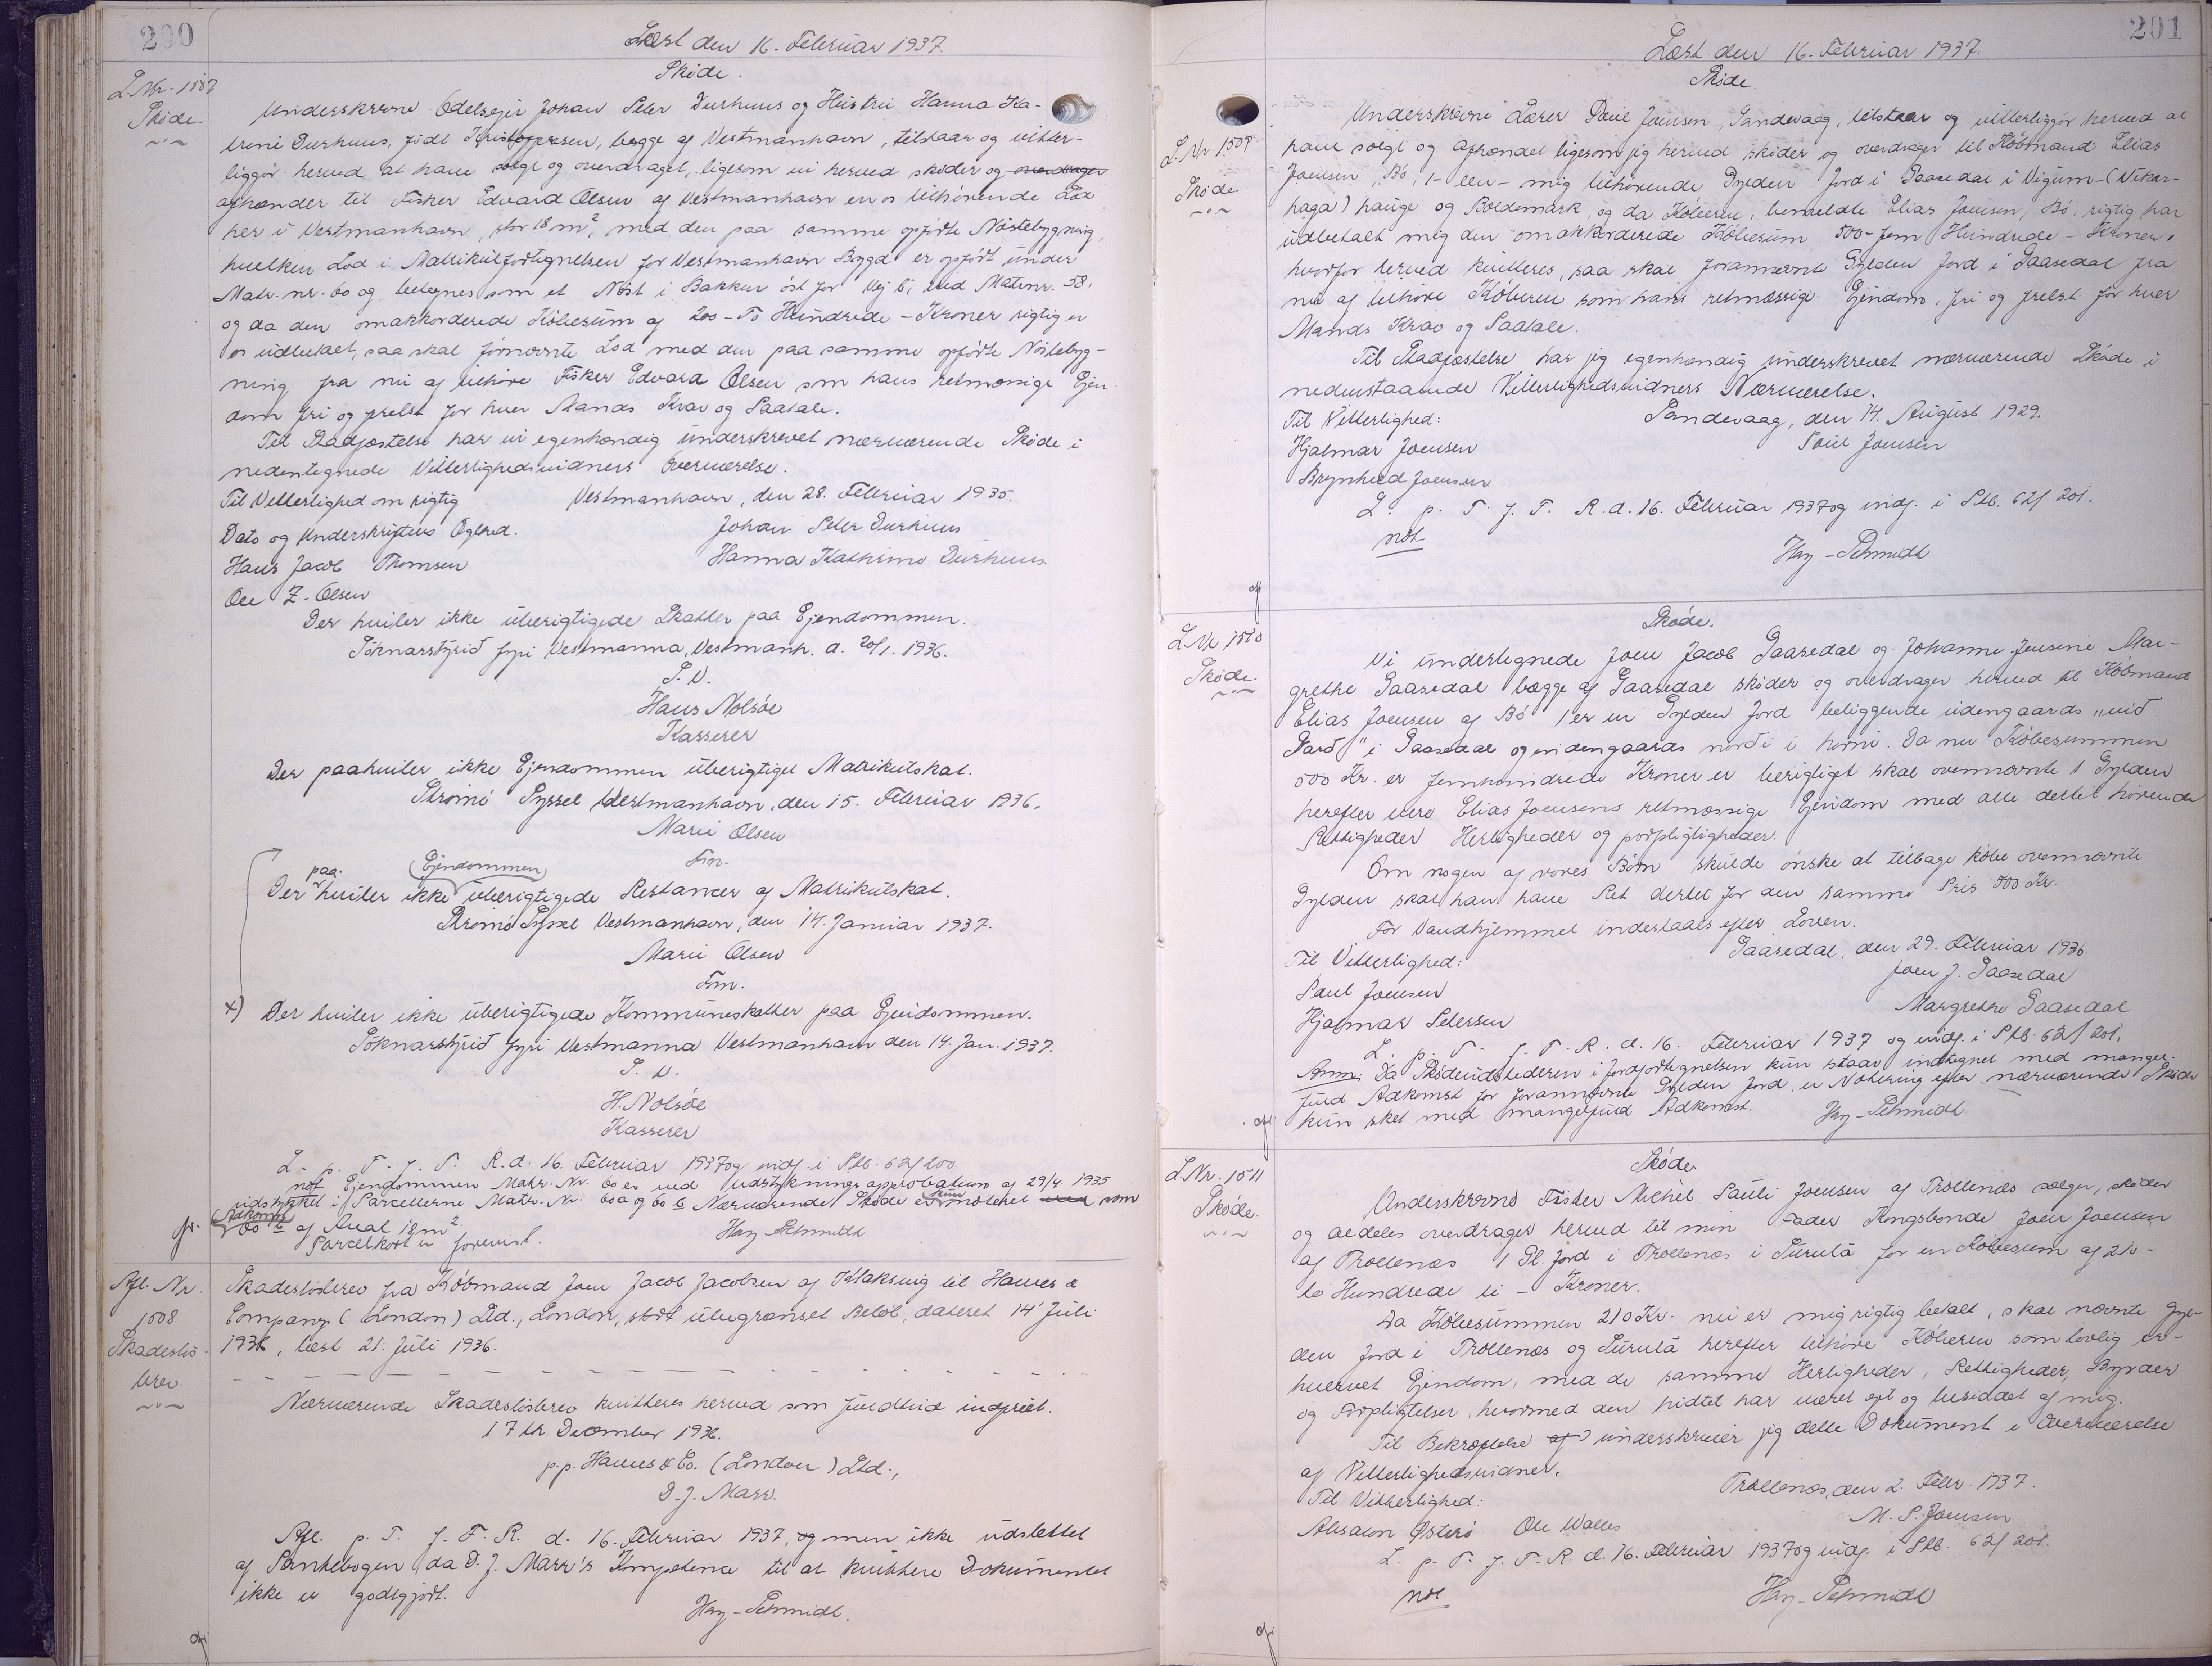 200
Læst den 16. Februar 1937.
L. Nr. 1507
Skøde.
Skøde.
Underskrevne Odelsejer Johan Peter Durhuus og Hustru Hanna Ka-
trine Durhuus, født Kristoffersen, begge af Vestmanhavn, tilstaar og vitter-
liggør herved at have solgt og overdraget, ligesom vi herved skøder og overdrager
afhænder til Fisker Edvard Olsen af Vestmanhavn en os tilhørende Lod
her i Vestmanhavn, stor 18 m², med den paa samme opførte Nøstebygning,
hvilken Lod i Matrikulfortegnelsen for Vestmanhavn Bygd er opført under
Matr. nr. 60 og betegnes som et Nøst i Bakkun øst for Vej 6, ved Matrnr. 58,
og da den omakkorderede Købesum af 200 - To Hundrede - Kroner rigtig er
os udbetalt, saa skal fornævnte Lod med den paa samme opførte Nøstebyg-
ning fra nu af tilhøre Fisker Edvard Olsen som hans retmæssige Ejen-
dom fri og frelst for hver Mands Krav og Paatale.
Til Stadfæstelse har vi egenhændig underskrevet nærværende Skøde i
nedentegnede Vitterlighedsvidners Overværelse.
Til Vitterlighed om rigtig
Vestmanhavn, den 28. Februar 1935.
Dato og Underskriftens Ægthed.
Johan Peter Durhuus
Hans Jacob Thomsen
Hanna Kathrine Durhuus.
Ole Z. Olsen
Der hviler ikke uberigtigede Skatter paa Ejendommen.
Sóknarstýrið fyri Vestmanna, Vestmanh. d. 20/1. 1936.
P. V.
Hans Nolsøe
Kasserer
Der paahviler ikke Ejendommen uberigtiget Matrikulskat.
Strømø Syssel Vestmanhavn, den 15. Februar 1936.
Marie Olsen
Fm.
paa
(Ejendommen)
Der hviler ikke uberigtigede Restancer af Matrikulskat.
Strømø Syssel Vestmanhavn, den 14. Januar 1937.
Marie Olsen
Fm.
x) Der hviler ikke uberigtigede Kommuneskatter paa Ejendommen.
Sóknarstýrið fyri Vestmanna Vestmanhavn den 14. Jan. 1937.
P. V.
H. Nolsøe
Kasserer
L. p. T. f. F. R. d. 16. Februar 1937 og indf. i Skb. 62/200
not Ejendommen Matr. Nr. 60 er ved Udstykningsapprobation af 29/4 1935
udstykket i Parcellerne Matr. Nr. 60a og 60b Nærværende Skøde er kun noteret med som
Adkomst
60 b af Areal 18 m².
Parcelkort er forevist.
Hay-Schmidt
Afl. Nr.
1508
Skadesløs-
brev
Skadesløsbrev fra Købmand Joen Jacob Jacobsen af Klaksvig til Hawes &
Company (London) Ltd., London, stort ubegrænset Beløb, dateret 14' Juli
1936, læst 21. Juli 1936.
Nærværende Skadesløsbrev kvitteres herved som fuldtud indfriet.
17th December 1936.
p.p. Hawes & Co. (London) Ltd.,
D. J. Marr.
Afl. p. T. f. F. R. d. 16. Februar 1937, og men ikke udslettet
af Pantebogen da D. J. Marr's Kompetence til at kvittere Dokumentet
ikke er godtgjort.
Hay-Schmidt.
201
Læst den 16. Februar 1937.
L. Nr. 1509
Skøde.
Skøde.
Underskrevne Lærer Poul Joensen, Sandevaag, tilstaar og vitterliggør herved at
have solgt og afhændet ligesom jeg herved skøder og overdrager til Købmand Elias
Joensen, Bø, 1 - een - mig tilhørende Gylden Jord i Gaasedal i Vigum - (Vikar-
haga) hauge og Boldemark, og da Køberen, bemeldte Elias Joensen, Bø, rigtig har
udbetalt mig den omakkorderede Købesum 500 - fem Hundrede - Kroner,
hvorfor herved kvitteres, saa skal forannævnte Gylden Jord i Gaasedal fra
nu af tilhøre Køberen som hans retmæssige Ejendom, fri og frelst for hver
Mands Krav og Paatale.
Til Stadfæstelse har jeg egenhændig underskrevet nærværende Skøde i
nedenstaaende Vitterlighedsvidners Nærværelse.
Til Vitterlighed:
Sandevaag, den 14. August 1929.
Hjalmar Joensen
Poul Joensen
Brynhild Joensen
L. p. T. f. F. R. d. 16. Februar 1937 og indf. i Skb. 62/201.
not
Hay-Schmidt
L. Nr. 1510
Skøde.
Skøde.
Vi undertegnede Joen Jacob Gaasedal og Johanne Jensine Mar-
grethe Gaasedal begge af Gaasedal skøder og overdrager herved til Købmand
Elias Joensen af Bø 1 er en Gylden Jord beliggende udengaards "við
Garð" i Gaasedal og indengaards norði i horni. Da nu Købesummen
500 Kr. er femhundrede Kroner er berigtiget skal ovennævnte 1 Gylden
herefter være Elias Joensens retmæssige Ejendom med alle dertil hørende
Rettigheder Herligheder og forpligtigheder.
Om nogen af vores Børn skulde ønske at tilbage købe ovennævnte
Gylden skal han have Ret dertil for den samme Pris 500 Kr.
For Vandhjemmel indestaas efter Loven.
Til Vitterlighed:
Gaasedal, den 29. Februar 1936.
Paul Joensen
Joen J. Gaasedal
Hjalmar Petersen
Margrethe Gaasedal
L. p. T. f. F. R. d. 16. Februar 1937 og indf. i Skb. 62/201.
Anm: Da Skødeudstederen i Jordfortegnelsen kun staar indtegnet med mangel-
fuld Adkomst for forannævnte Gylden Jord, er Notering efter nærværende Skøde
kun sket med mangelfuld Adkomst.
Hay-Schmidt
L. Nr. 1511
Skøde.
Skøde
Underskrevne Fisker Michel Pauli Joensen af Trollenæs sælger, skøder
og aldeles overdrager herved til min Fader Kongsbonde Joen Joensen
af Trollenæs 1 Gl. Jord i Trollenæs i Turulá for en Købesum af 210 -
to Hundrede ti - Kroner.
Da Købesummen 210 Kr. nu er mig rigtig betalt, skal nævnte Gyl-
den Jord i Trollenæs og Turulá herefter tilhøre Køberen som lovlig er-
hvervet Ejendom, med de samme Herligheder, Rettigheder, Byrder
og Forpligtelser, hvormed den hidtil har været ejet og besiddet af mig.
Til Bekræftelse af underskriver jeg dette Dokument i Overværelse
af Vitterlighedsvidner.
Til Vitterlighed:
Trollenæs, den 2. Febr. 1937.
Absalon Østerø Ole Walles
M. P. Joensen
L. p. T. f. F. R. d. 16. Februar 1937 og indf. i Skb. 62/201.
not
Hay-Schmidt